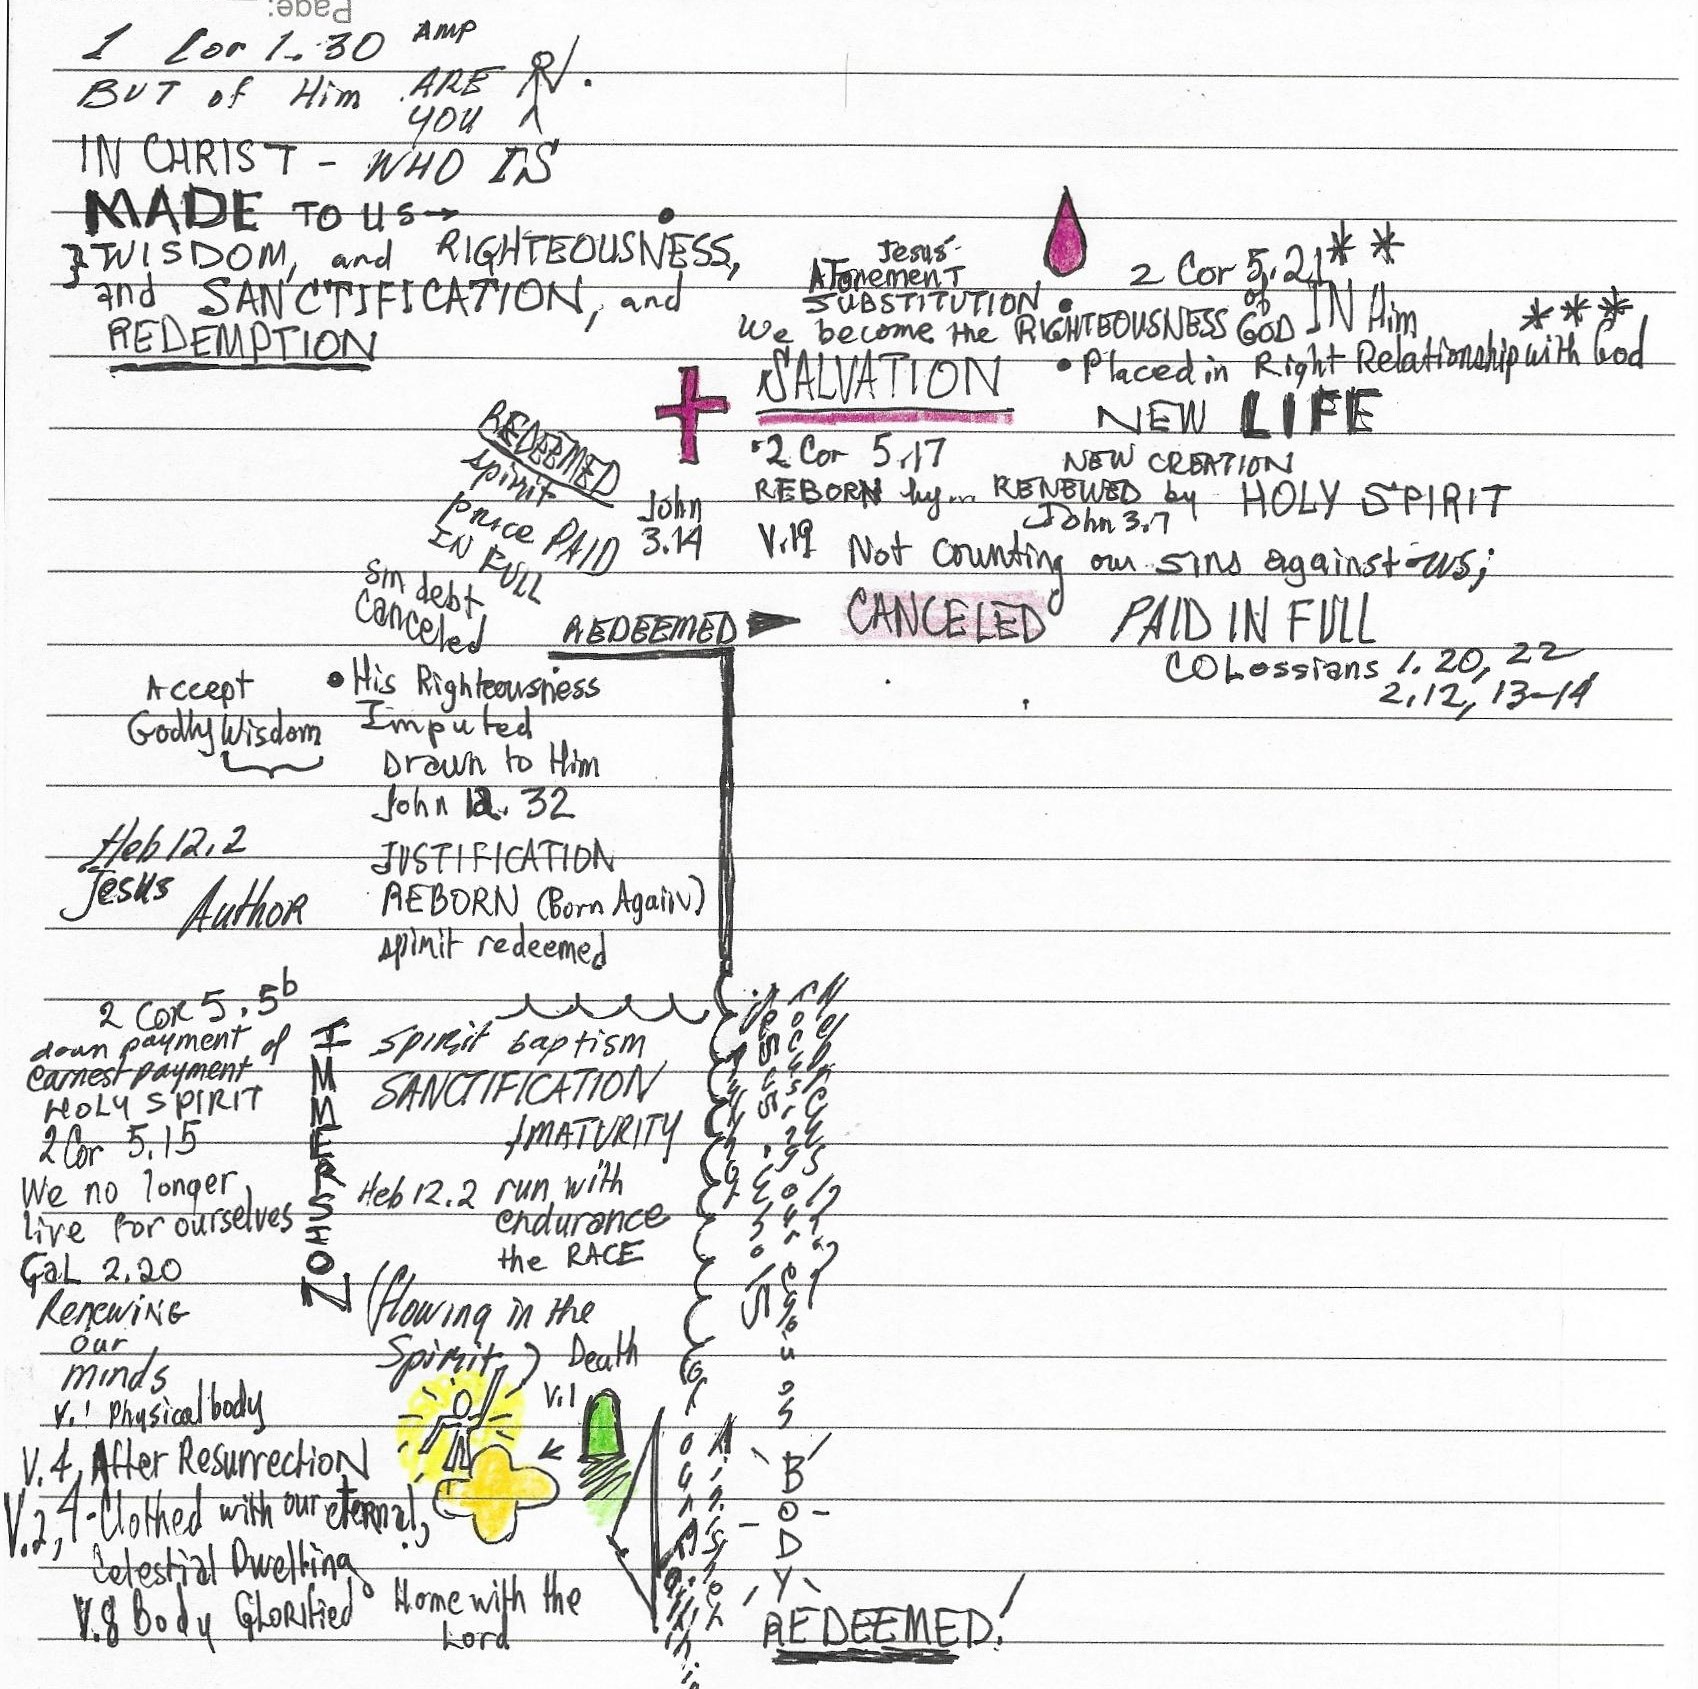 Page:
1 Cor 1.30 AMP
BUT of Him ARE YOU
IN CHRIST - WHO IS
MADE TO US→
WISDOM, and RIGHTEOUSNESS,
and SANCTIFICATION, and
REDEMPTION
Jesus'
ATonemenT
SUBSTITUTION
2 Cor 5.21**
We become the RIGHTEOUSNESS of GOD IN Him
***
• Placed in Right Relationship with God
SALVATION
NEW LIFE
2 Cor 5.17
NEW CREATION
REBORN by... RENEWED by HOLY SPIRIT
John 3.7
V.19 Not counting our sins against us;
CANCELED PAID IN FULL
COLossians 1.20, 22
2.12, 13-14
REDEEMED
spirit
price PAID
IN FULL
John
3.14
Sin debt
Canceled
REDEEMED
Accept
Godly Wisdom
• His Righteousness
Imputed
Drawn to Him
John 12.32
Heb 12.2
Jesus Author
JUSTIFICATION
REBORN (Born Again)
spirit redeemed
2 Cor 5.5b
down payment of
earnest payment
HOLY SPIRIT
2 Cor 5.15
We no longer
live for ourselves
Gal 2.20
Renewing
our
minds
IMMERSION
Spirit baptism
SANCTIFICATION
/MATURITY
Heb 12.2 run with
endurance
the RACE
(flowing in the
Spirit)
Death
V.1
V.1 Physical body
V.4, After Resurrection
V.2, 4-Clothed with our eternal,
Celestial Dwelling
V.8 Body Glorified
Home with the
Lord
BODY
REDEEMED!